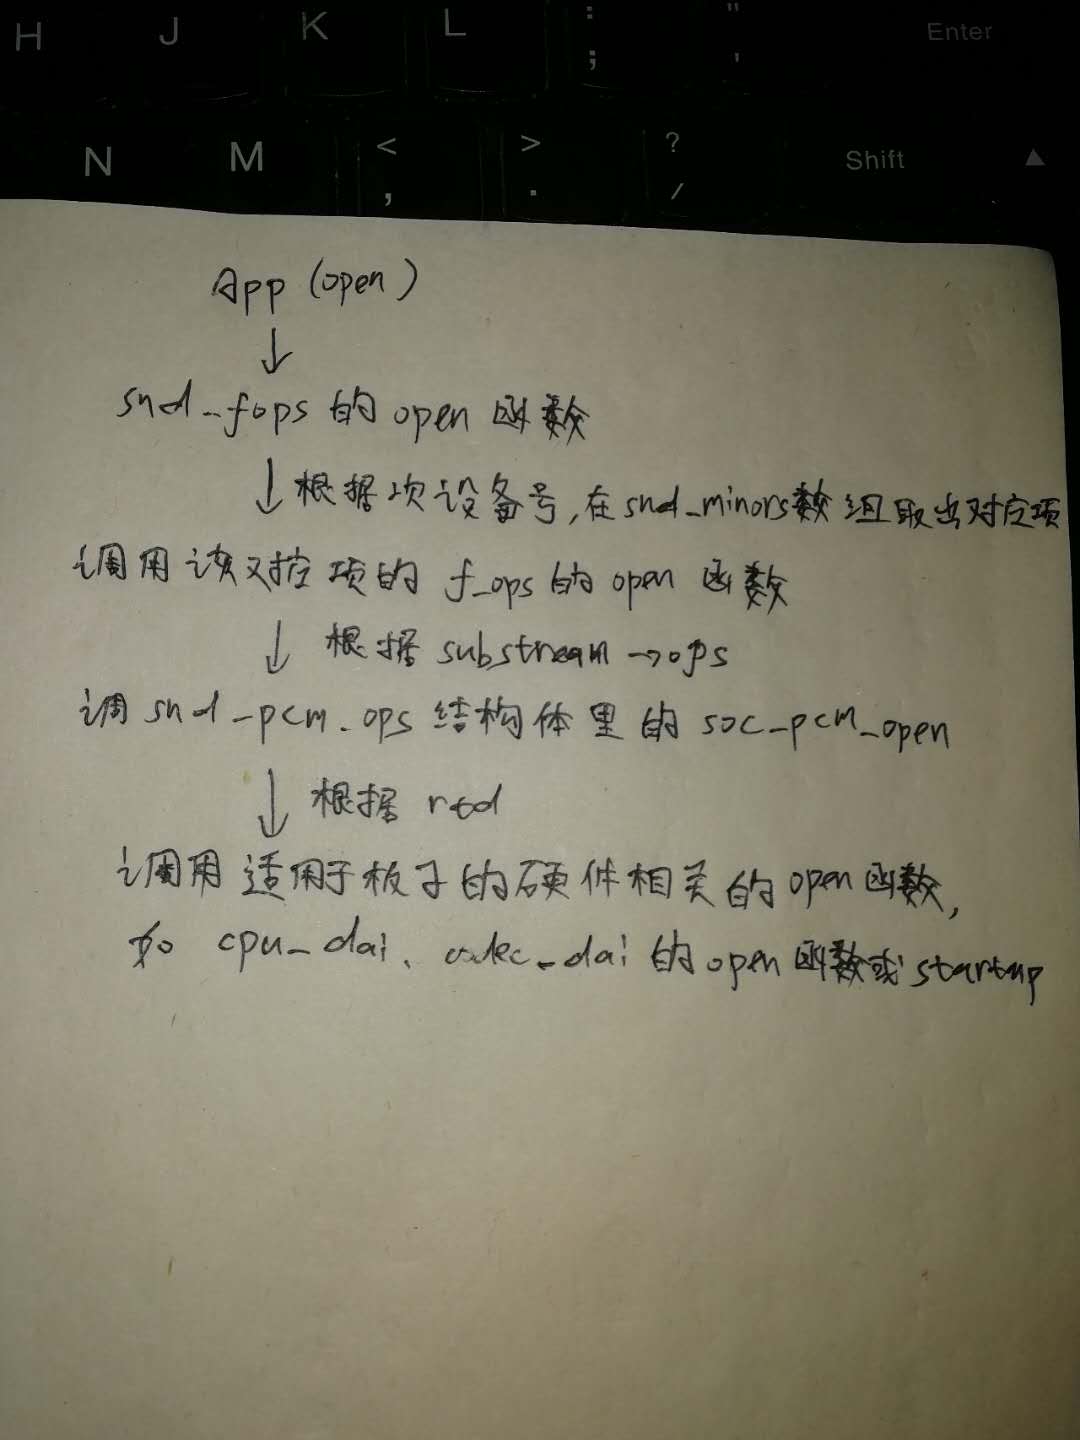 H J K L : ; " ' Enter
N M < , > . ? / Shift ▲
App (open)
↓
snd_fops 的 open 函数
↓ 根据次设备号,在snd_minors数组取出对应项
调用该对应项的 f_ops 的 open 函数
↓ 根据 substream →ops
调 snd_pcm_ops 结构体里的 soc_pcm_open
↓ 根据 rtd
调用适用于板子的硬件相关的open函数,
如 cpu_dai、codec_dai 的open 函数或startup